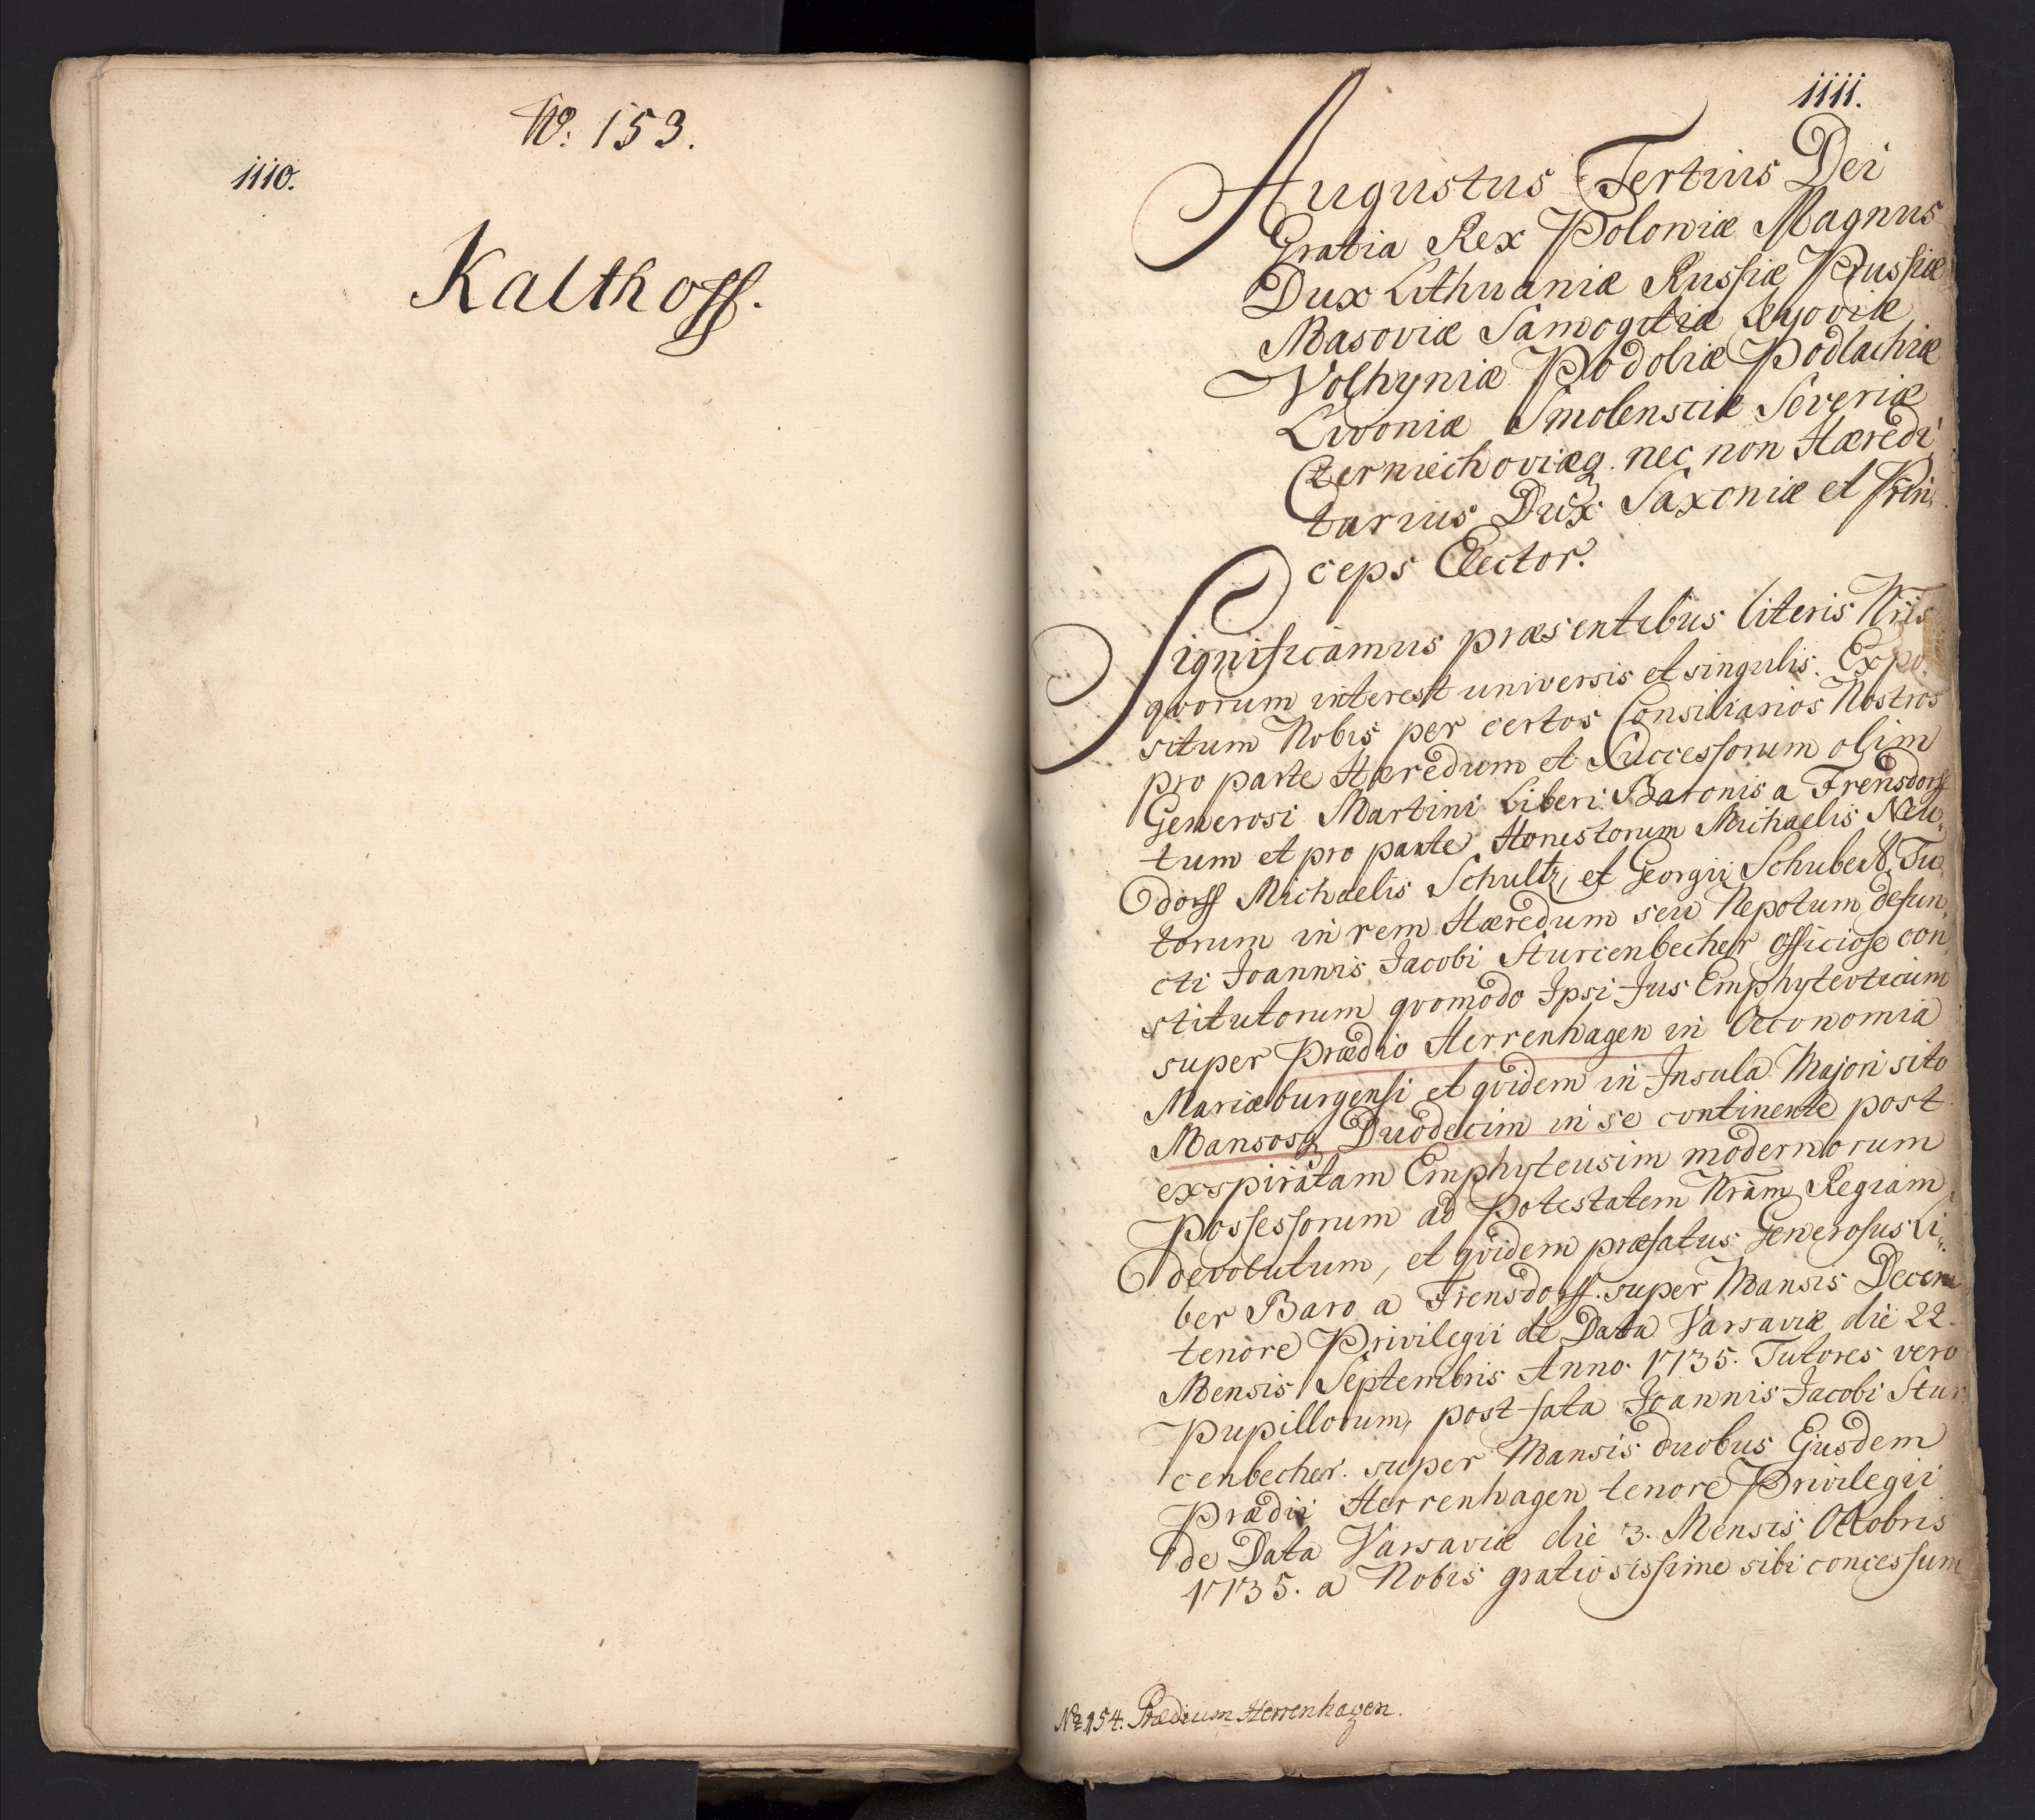 No. 153.
1110.
Kalthoff.
1111.
Augustus Tertius Dei
Gratia Rex Poloniæ Magnus
Dux Lithuaniæ Russiæ Prussiæ
Masoviæ Samogitiæ Kyoviæ
Volhyniæ Podoliæ Podlachiæ
Livoniæ Smolensciæ Severiæ
Czerniechoviæq. nec non Hæredi„
tarius Dux Saxoniæ et Prin„
ceps Elector.
Significamus præsentibus literis Nris
qvorum interest universis et singulis. Expo„
situm Nobis per certos Consiliarios Nostros
pro parte Hæredum et Successorum olim
Generosi Martini Liberi Baronis a Frensdorff
tum et pro parte Honestorum Michaelis Neu„
dorff Michaelis Schultz, et Georgii Schubert, Tu„
torum in rem Hæredum seu Nepotum defun„
cti Joannis Jacobi Sturcenbecher officiose con„
stitutorum qvomodo Ipsi Jus Emphytevticum
super Prædio Herrenhagen in Oeconomia
Mariæburgensi et qvidem in Insula Majori sito
Mansosq Duodecim in se continente post
exspiratam Emphyteusim modernorum
Possessorum ad Potestatem Nram Regiam
devolutum, et qvidem præfatus Generosus Li„
ber Baro a Frensdorff. super Mansis Decem
tenore Privilegii de Data Varsaviæ die 22.
Mensis Septembris Anno 1735. Tutores vero
Pupillorum, post fata Joannis Jacobi Stur
cenbecher. super Mansis duobus Ejusdem
Prædii Herrenhagen tenore Privilegii
de Data Varsaviæ die 3. Mensis Octobris
1735. a Nobis gratiosissime sibi concessum
No 154. Prædium Herrenhagen.